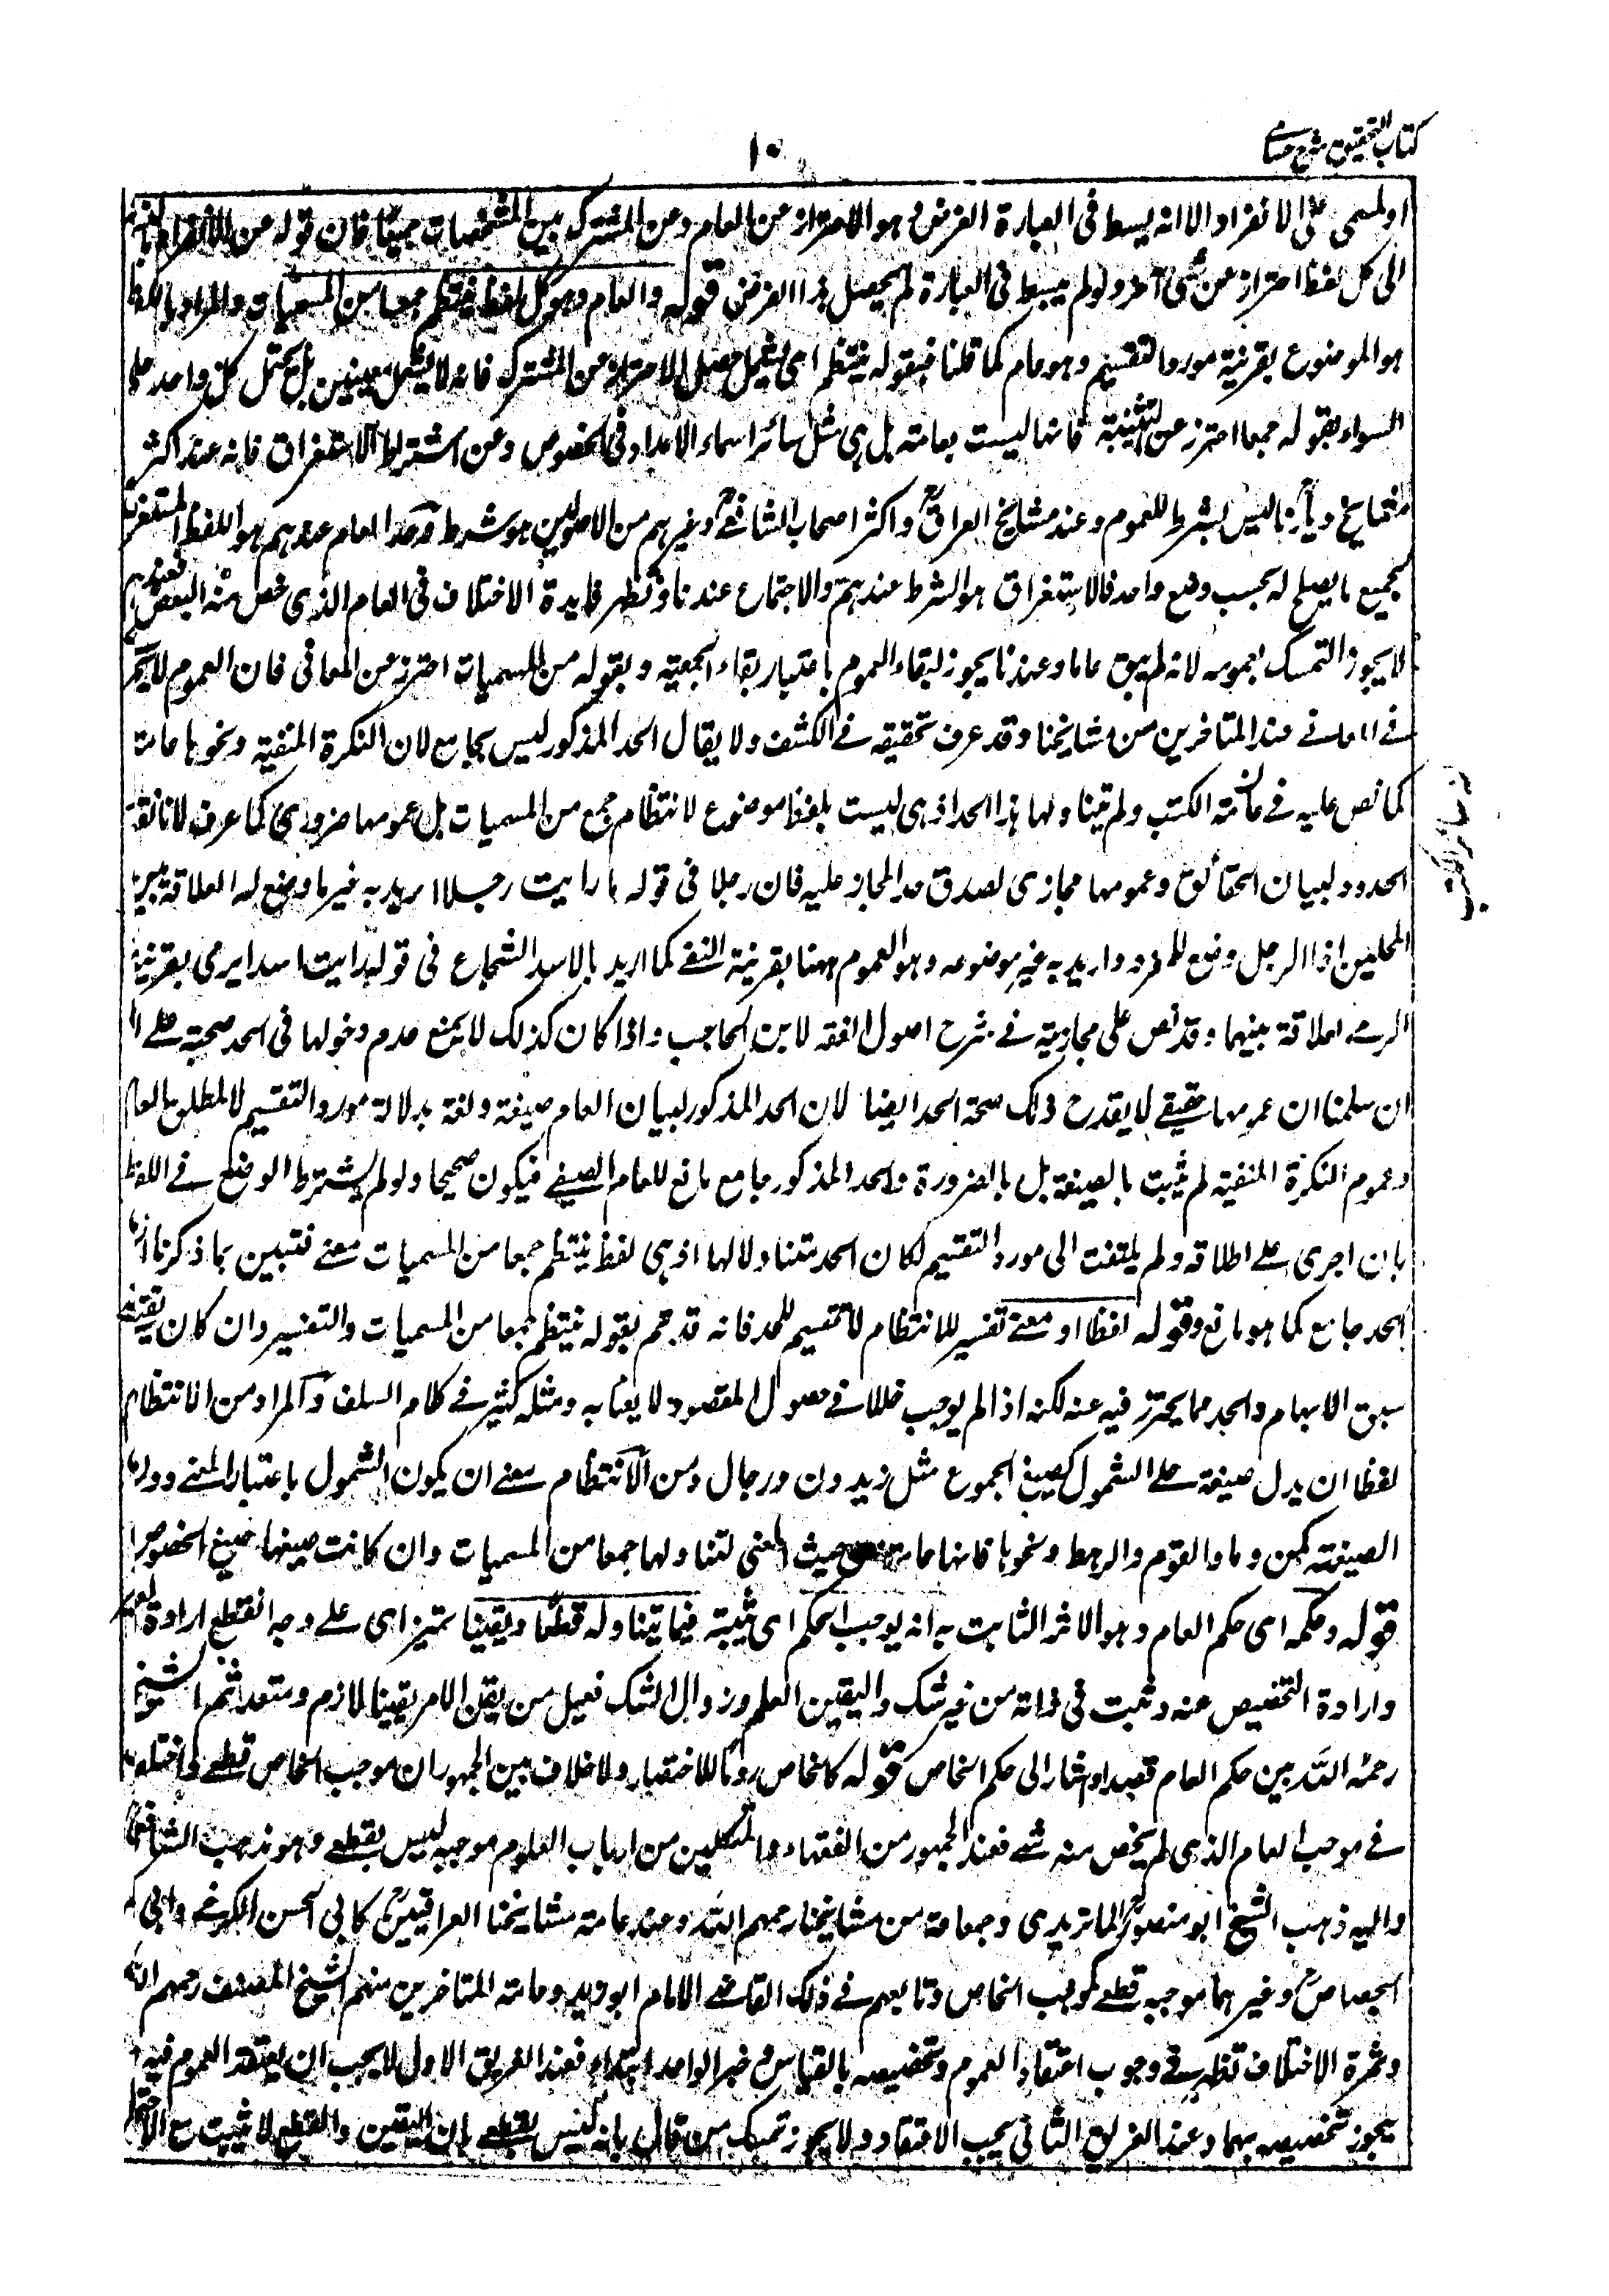 كتاب التحقيق شرح حسامي
١٠
او لمسمى على الانفراد الا انه بسط فى العبارة الغرض وهو الاحتراز عن العام وعن المشترك بين المشخصات جميعا فان قوله عن الانفراد
الى كل لفظ احتراز عن شئ آخر ولو لم يبسط فى العبارة لم يحصل هذا الغرض قوله والعام وهو كل لفظ ينتظم جمعا من المسميات والمراد باللفظ
هو الموضوع بقرينة مورد التقسيم وهو عام كما قلنا فبقوله ينتظم اى يشمل حصل الاحتراز عن المشترك فانه لا يشمل معنيين بل يحتمل كل واحد على
السواء وبقوله جمعا احترز عن التثنية فانها ليست بعامة بل هى مثل سائر اسماء الاعداد فى الخصوص وعن اشتراط الاستغراق فانه عند اكثر
مشايخ ديارنا ليس بشرط للعموم وعند مشايخ العراق واكثر اصحاب الشافعي وغيرهم من الاصوليين هو شرط وحد العام عندهم هو اللفظ المستغرق
لجميع ما يصلح له بحسب وضع واحد فالاستغراق هو الشرط عندهم والاجتماع عندنا وتظهر فايدة الاختلاف فى العام الذى خص منه البعض فعندهم
لا يجوز التمسك بعمومه لانه لم يبق عاما وعندنا يجوز لبقاء العموم باعتبار بقاء الجمعية وبقوله من المسميات احترز عن المعانى فان العموم لا يجرى
فى المعانى عند المتاخرين من مشايخنا وقد عرف تحقيقه فى الكشف ولا يقال الحد المذكور ليس بجامع لان النكرة المنفية ونحوها عامة
كما نص عليه فى عامة الكتب ولم يتناولها هذا الحد اذ هى ليست بلفظ موضوع لانتظام جمع من المسميات بل عمومها ضرورى كما عرف لانا نقول
الحدود لبيان الحقائق وعمومها مجازى لصدق حد المجاز عليه فان رجلا فى قوله ما رايت رجلا اريد به غير ما وضع له لعلاقة بين
المحلين اذ الرجل وضع للفرد واريد به غير موضوعه وهو العموم ههنا بقرينة النفى كما اريد بالاسد الشجاع فى قوله رايت اسدا يرمى بقرينة
الرمى لعلاقة بينهما وقد نص على مجازيته فى شرح اصول الفقه لابن الحاجب واذا كان كذلك لا يمنع عدم دخولها فى الحد صحته على انا
ان سلمنا ان عمومها حقيقى لا يقدح ذلك صحة الحد ايضا لان الحد المذكور لبيان العام صيغة ولغة بدلالة مورد التقسيم لا لمطلق العام
وعموم النكرة المنفية لم يثبت بالصيغة بل بالضرورة والحد المذكور جامع مانع للعام الصيغى فيكون صحيحا ولو لم يشترط الوضع فى اللفظ
بان اجرى على اطلاقه ولم يلتفت الى مورد التقسيم لكان الحد متناولا لها اذ هى لفظ ينتظم جمعا من المسميات معنى فتبين بما ذكرنا ان
الحد جامع كما هو مانع وقوله لفظا او معنى تفسير للانتظام لا تقسيم للحد فانه قد تم بقوله ينتظم جمعا من المسميات والتفسير وان كان يقتضى
سبق الابهام والحد مما يحترز فيه عنه لكنه اذا لم يوجب خللا فى حصول المقصود لا يعبأ به ومثله كثير فى كلام السلف والمراد من الانتظام
لفظا ان يدل صيغة على الشمول كصيغ الجموع مثل زيدون ورجال ومن الانتظام معنى ان يكون الشمول باعتبار المعنى دون
الصيغة كمن وما والقوم والرهط ونحوها فانها عامة من حيث المعنى لتناولها جمعا من المسميات وان كانت صيغها صيغ الخصوص
قوله وحكمه اى حكم العام وهو الاثر الثابت به انه يوجب الحكم اى يثبته فيما يتناوله قطعا ويقينا تميز اى على وجه انقطع ارادة الغير
وارادة التخصيص عنه وثبت فى ذاته من غير شك واليقين العلم وزوال الشك فعيل من يقن الامر يقينا لازم ومتعد ثم الشيخ
رحمه الله بين حكم العام قصدا واشار الى حكم الخاص بقوله كالخاص روما للاختصار ولا خلاف بين الجمهور ان موجب الخاص قطعى واختلف
فى موجب العام الذى لم يخص منه شئ فعند الجمهور من الفقهاء والمتكلمين من ارباب العلوم موجبه ليس بقطعى وهو مذهب الشافعى
واليه ذهب الشيخ ابو منصور الماتريدى وجماعة من مشايخنا رحمهم الله وعند عامة مشايخنا العراقيين كابى الحسن الكرخى وابى بكر
الجصاص وغيرهما موجبه قطعى كموجب الخاص وتابعهم فى ذلك القاضى الامام ابو زيد وعامة المتاخرين منهم الشيخ المصنف رحمهم الله
وثمرة الاختلاف تظهر فى وجوب اعتقاد العموم وتخصيصه بالقياس وخبر الواحد ابتداء فعند الفريق الاول لا يجب ان يعتقد العموم فيه
يجوز تخصيصه بهما وعند الفريق الثانى يجب الاعتقاد ولا يجوز تمسك من قال بانه ليس بقطعى بان اليقين والقطع لا يثبت مع